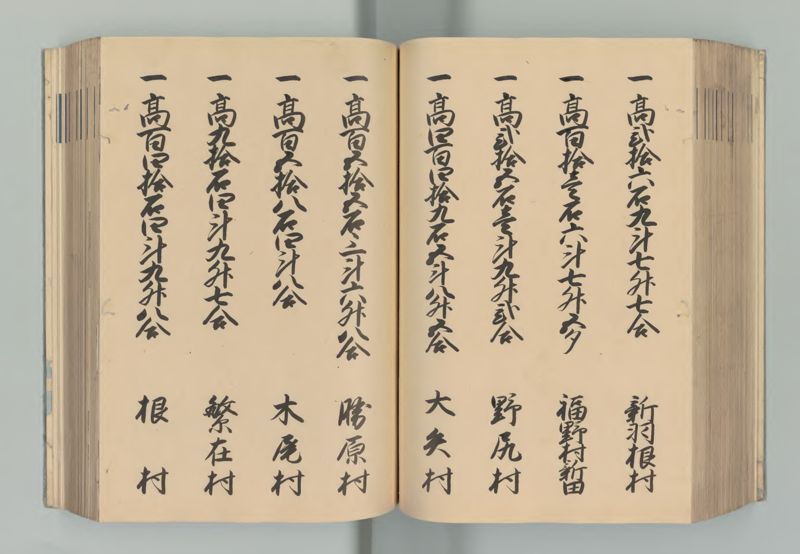 一 高弐拾六石九斗七升七合 新羽根村
一 高百拾壱石六斗七升五夕 福野村新田
一 高弐拾五石壱斗九升弐合 野尻村
一 高四百四拾九石五斗八升五合 大矢村
一 高百五拾五石二斗六升八合 勝原村
一 高百五拾八石四斗八合 木尾村
一 高九拾石四斗九升七合 繁在村
一 高百四拾石四斗九升八合 根村